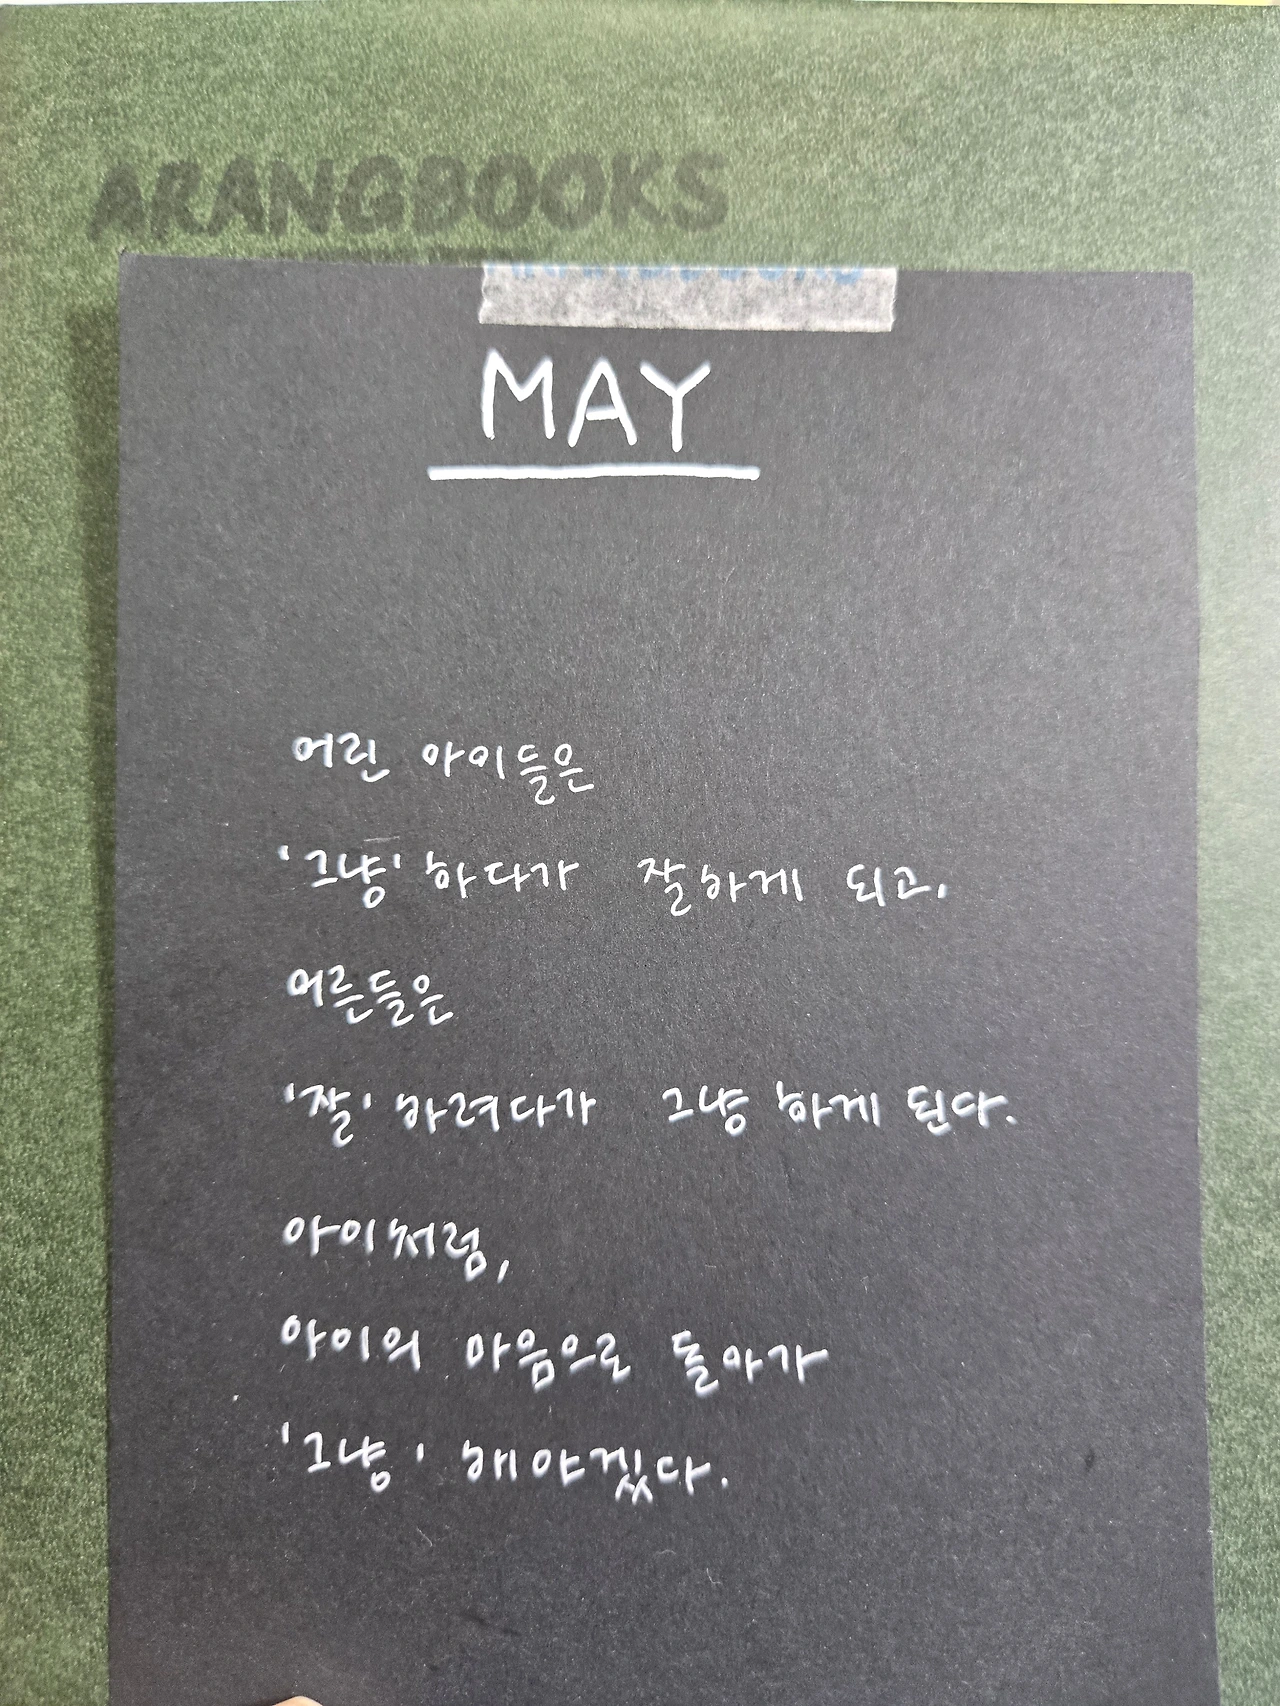 ARANGBOOKS
MAY
어린 아이들은
'그냥' 하다가 잘하게 되고.
어른들은
'잘' 하려다가 그냥 하게 된다.
아이처럼,
아이의 마음으로 돌아가
'그냥' 해야겠다.